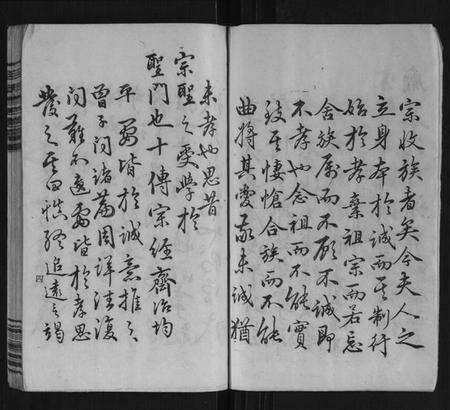 宗收族者矣今夫人之
立身本於誠而其制行
始於孝棄祖宗而若忘
舍族属而不顧不誠即
不孝也念祖而不能實
致其悽愴合族而不能
曲將其愛敬未誠猶
未孝也思昔
宗聖之受學於
聖門也十傳宗經齊治均
平要皆於誠意推之
曾子問諸篇周詳往復
問難不過要皆於孝思
發之其曰慎終追遠之竭
四